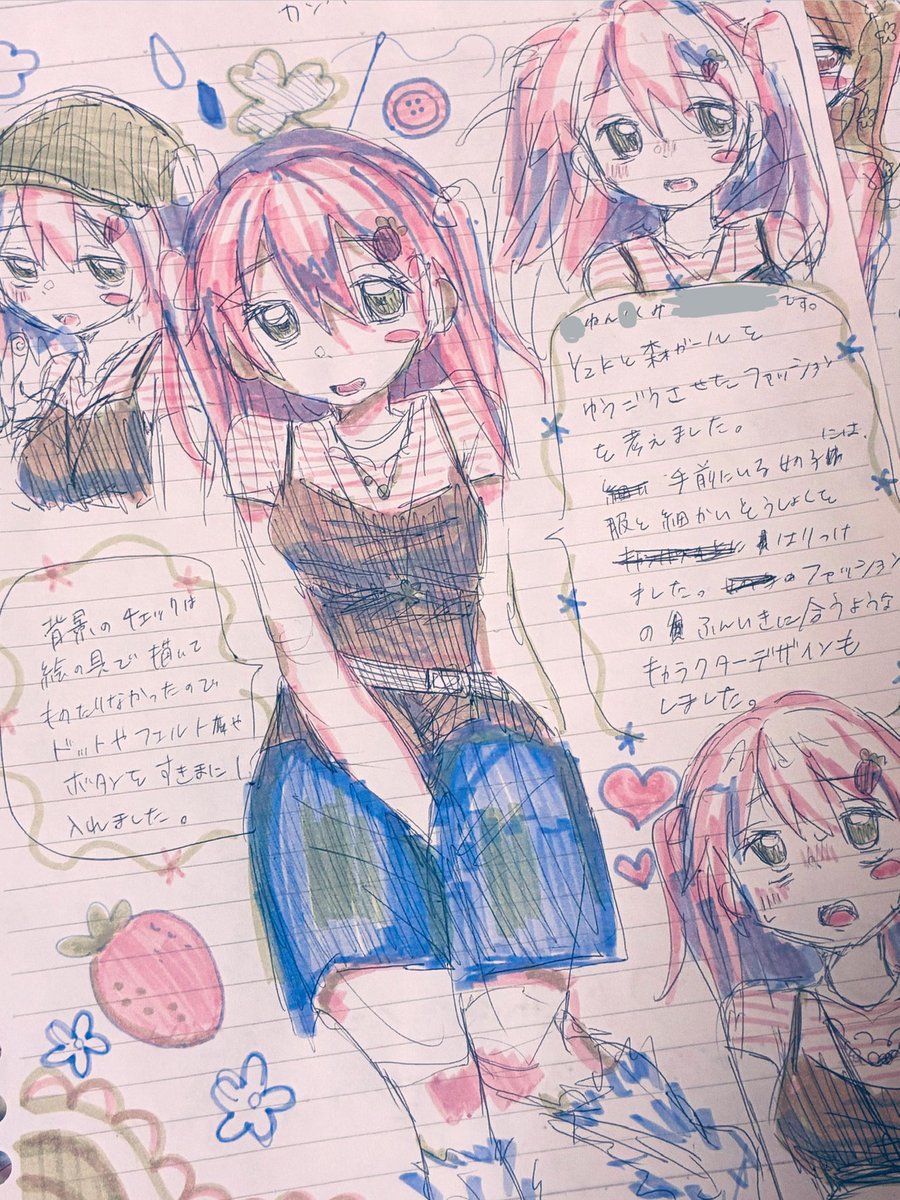 カンバ
ねん くみ です。
Y2Kと森ガールを
ゆうごうさせたファッション
を考えました。
手前にいる女の子には、
服と細かいそうしょくを
はりつけ
ました。 のファッション
の ふんいきに合うような
キャラクターデザインも
しました。
背景のチェックは
絵の具で描いて
ものたりなかったので
ドットやフェルト や
ボタンをすきまに
入れました。